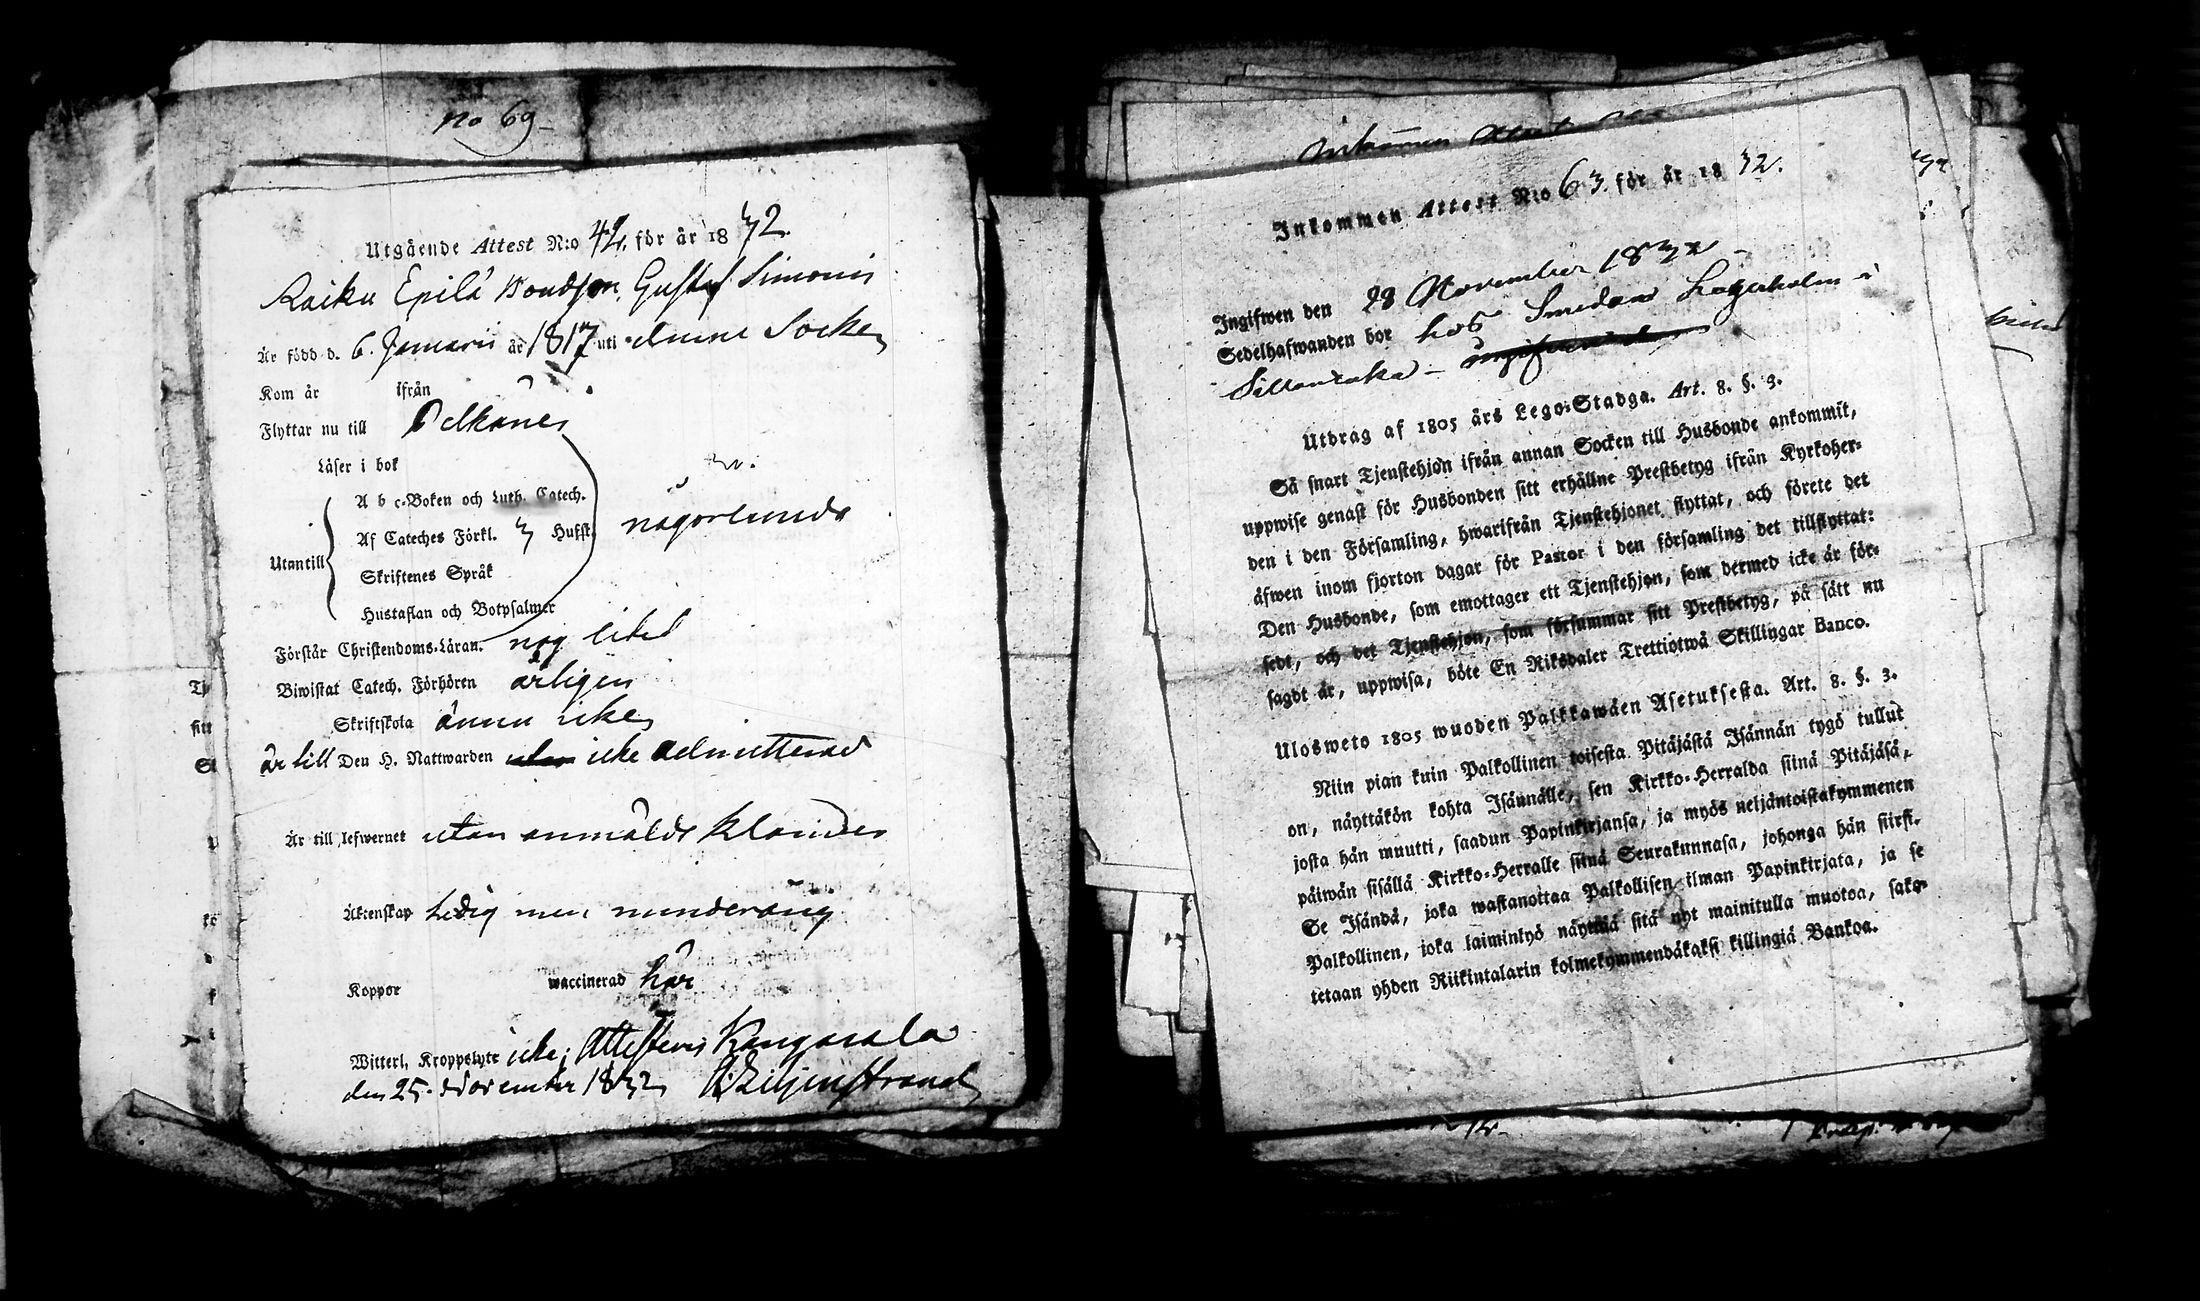 No 69
Utgående Attest N:o 42 för år 1832
Raiku Epilä Bondson Gustaf Simonis
Är född d. 6. Januarii år 1817 uti denne Socken
Kom år ifrån
Flyttar nu till Pelkäne
Läser i bok
A b c-Boken och Luth. Catech.
Af Cateches Förkl. 3 Hufst. någorlunda
Utantill
Skriftenes Språk
Hustaflan och Botpsalmer
Förstår Christendoms-Läran. nog litet
Biwistat Catech. Förhören årligen
Skriftskola ännu icke
är till Den H. Nattwarden icke admitterad
Är till lefwernet utan anmäldt klander
Äktenskap Ledig men minderårig
Koppor waccinerad har
Witterl. Kroppslyte icke; Attesteras Kangasala
den 25. November 1832 Liljenstrand
Inkommen Attest N:o 63 för år 1832.
Ingifwen den 28 November 1832
Sedelhafwanden bor hos Smeden Lagerholm i
Utdrag af 1805 års Lego-Stadga. Art. 8. §. 3.
Så snart Tjenstehjon ifrån annan Socken till Husbonde ankommit,
uppwise genast för Husbonden sitt erhållne Prestbetyg ifrån Kyrkoher-
den i den Församling, hwarifrån Tjenstehjonet flyttat, och förete det
äfwen inom fjorton dagar för Pastor i den församling det tillflyttat:
Den Husbonde, som emottager ett Tjenstehjon, som dermed icke är för-
sedt, och det Tjenstehjon, som försummar sitt Prestbetyg, på sätt nu
sagdt är, uppwisa, böte En Riksdaler Trettiotwå Skillingar Banco.
Ulosweto 1805 wuoden Palkkawäen Asetuksesta. Art. 8. §. 3.
Niin pian kuin Palkollinen toisesta Pitäjästä Isännän tygö tullut
on, näyttäkön kohta Isännälle, sen Kirkko-Herralda siinä Pitäjäsä,
josta hän muutti, saadun Papinkirjansa, ja myös neljäntoistakymmenen
päiwän sisällä Kirkko-Herralle siinä Seurakunnasa, johonga hän siirsi.
Se Isändä, joka wastanottaa Palkollisen ilman Papinkirjata, ja se
Palkollinen, joka laiminlyö näyttää sitä nyt mainitulla muotoa, sako-
tetaan yhden Riikintalarin kolmekymmendäkaksi killingiä Bankoa.